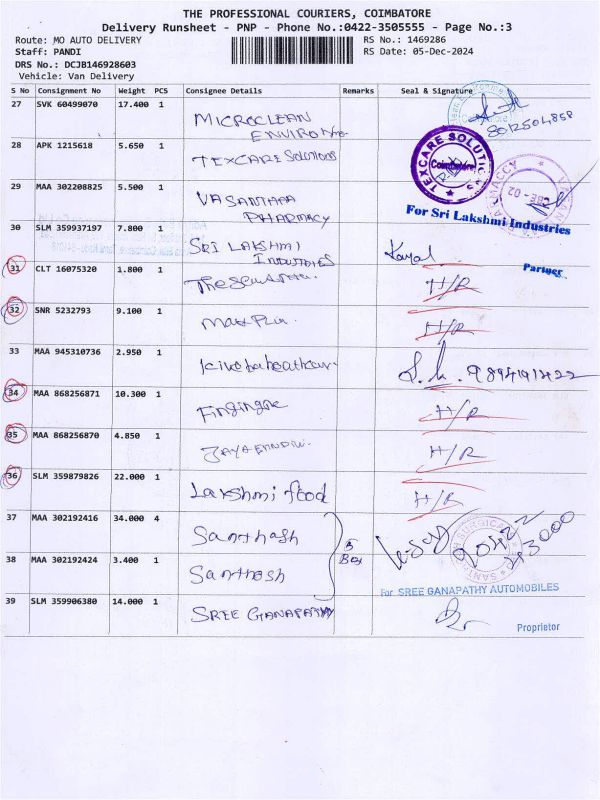 THE PROFESSIONAL COURIERS, COIMBATORE
Delivery Runsheet - PNP - Phone No.:0422-3505555 - Page No.:3
Route: MO AUTO DELIVERY
RS No.: 1469286
Staff: PANDI
RS Date: 05-Dec-2024
DRS No.: DCJB146928603
Vehicle: Van Delivery
S No Consignment No Weight PCS Consignee Details Remarks Seal & Signature
27 SVK 60499070 17.400 1 MICROCLEAN
8012504858
28 APK 1215618 5.650 1 TEXCARE Solutions
TEXCARE SOLUTIONS
Coimbatore
29 MAA 302208825 5.500 1 VASANTHA
PHARMACY
CBE - 02
For Sri Lakshmi Industries
30 SLM 359937197 7.800 1 SRI LAKSHMI
INDUSTRIES
Partner
31 CLT 16075320 1.800 1 H/R
32 SNR 5232793 9.100 1 H/R
33 MAA 945310736 2.950 1
34 MAA 868256871 10.300 1 H/R
35 MAA 868256870 4.850 1 H/R
36 SLM 359879826 22.000 1 Lakshmi food H/R
37 MAA 302192416 34.000 4 Santhosh
5
Box
38 MAA 302192424 3.400 1 Santhosh
For SREE GANAPATHY AUTOMOBILES
39 SLM 359906380 14.000 1 SREE GANAPATHY
Proprietor